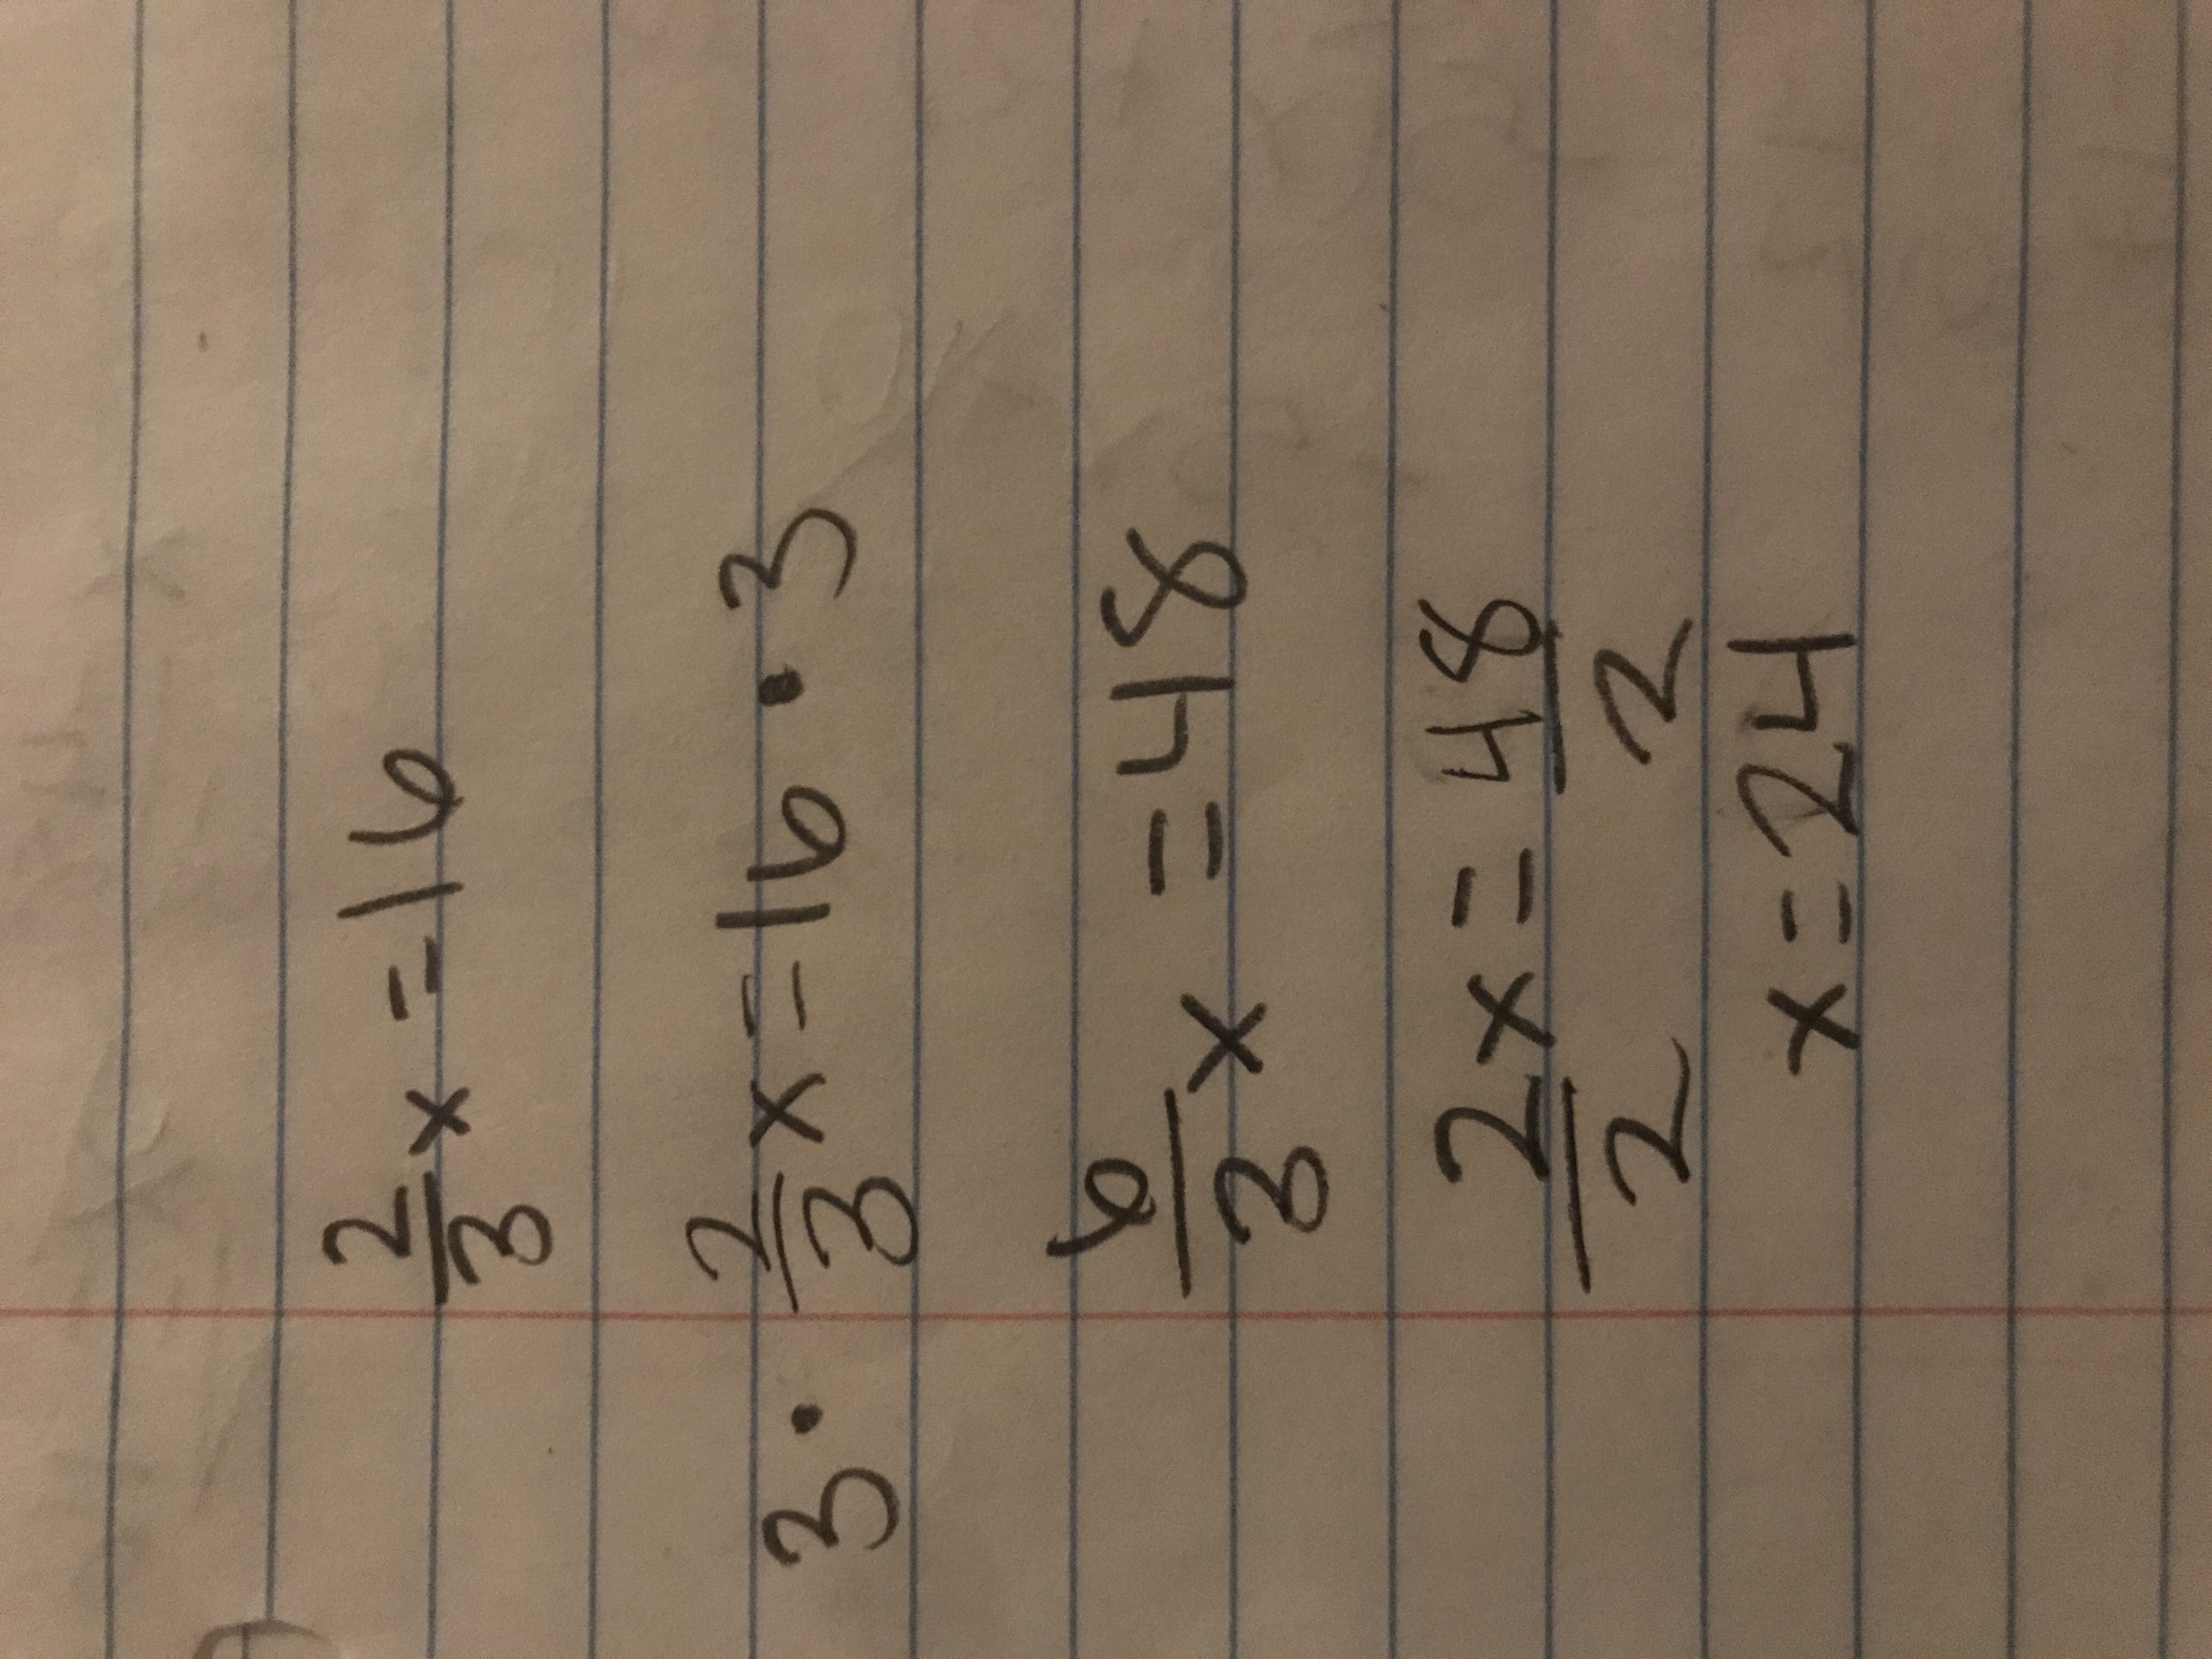 2/3 x = 16
3 · 2/3 x = 16 · 3
6/3 x = 48
2x/2 = 48/2
x = 24